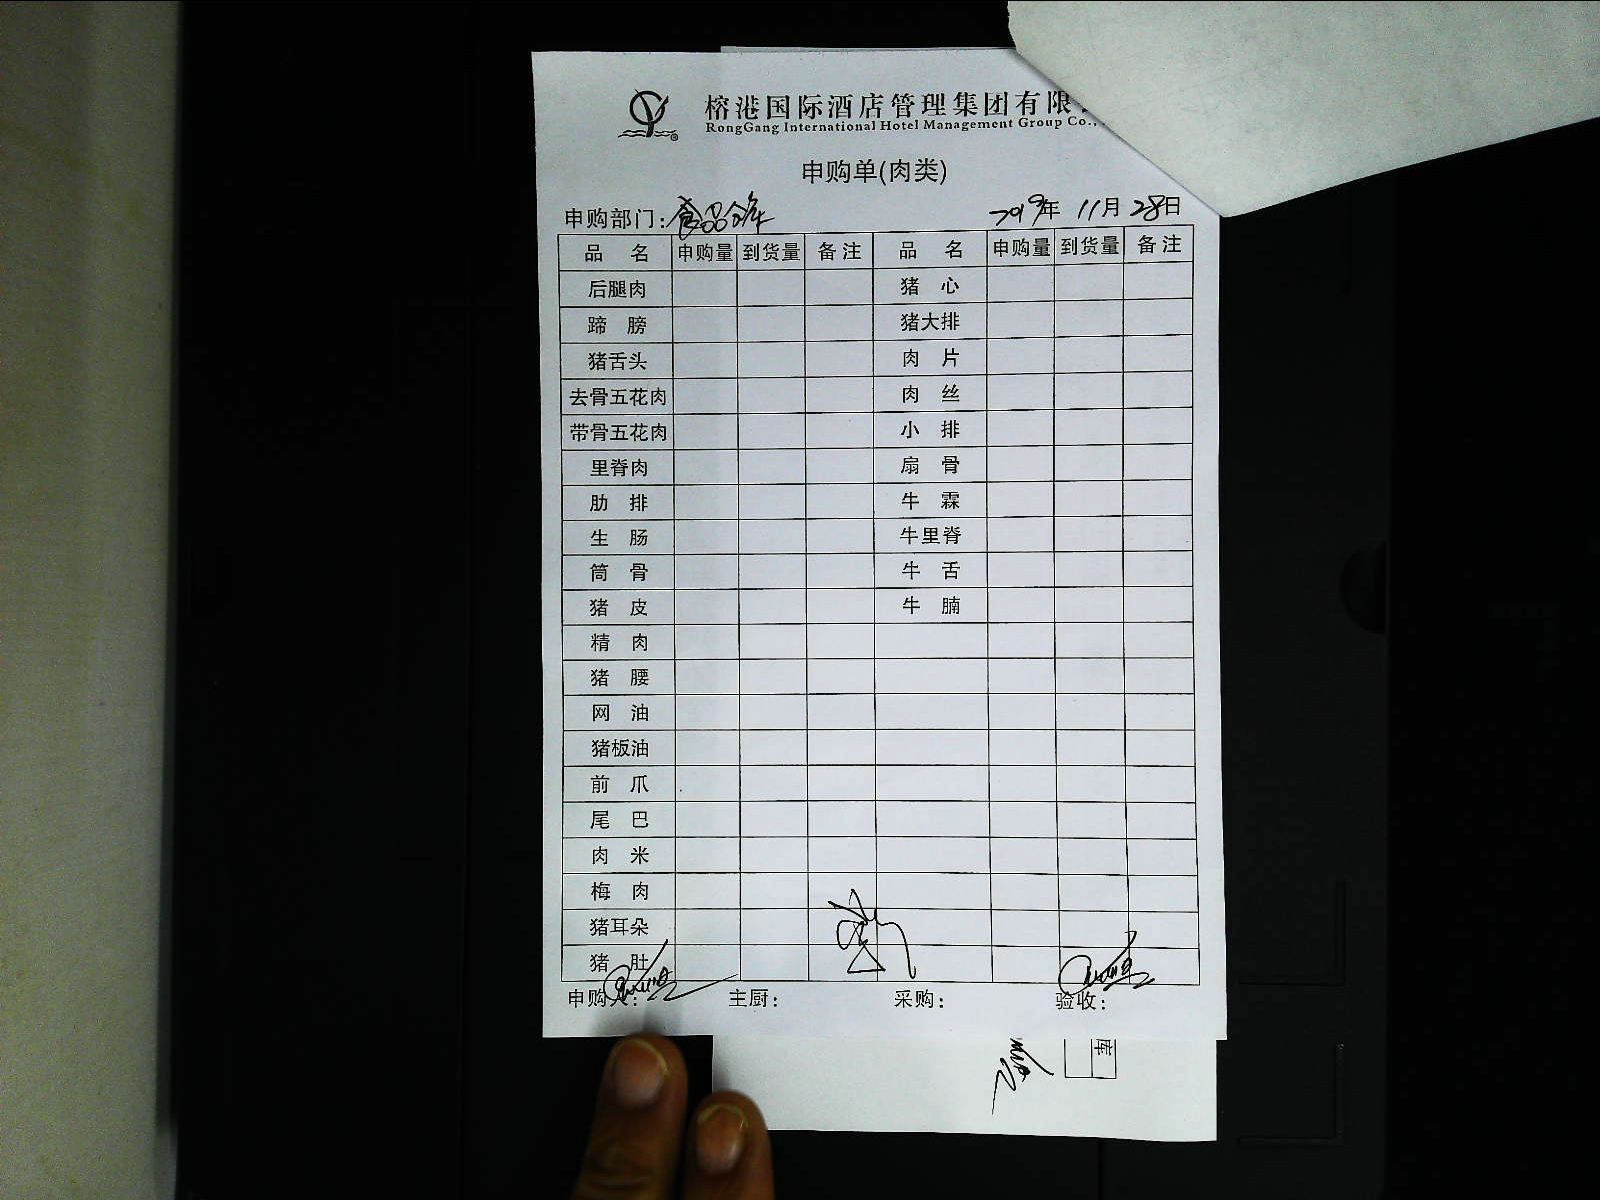 榕港国际酒店管理集团有限
RongGang International Hotel Management Group Co.,
申购单(肉类)
申购部门: 食品仓库 2019年 11月 28日
品 名 申购量 到货量 备注 品 名 申购量 到货量 备注
后腿肉 猪 心
蹄 膀 猪大排
猪舌头 肉 片
去骨五花肉 肉 丝
带骨五花肉 小 排
里脊肉 扇 骨
肋 排 牛 霖
生 肠 牛里脊
筒 骨 牛 舌
猪 皮 牛 腩
精 肉
猪 腰
网 油
猪板油
前 爪
尾 巴
肉 米
梅 肉
猪耳朵
猪 肚
申购人: 主厨: 采购: 验收:
库